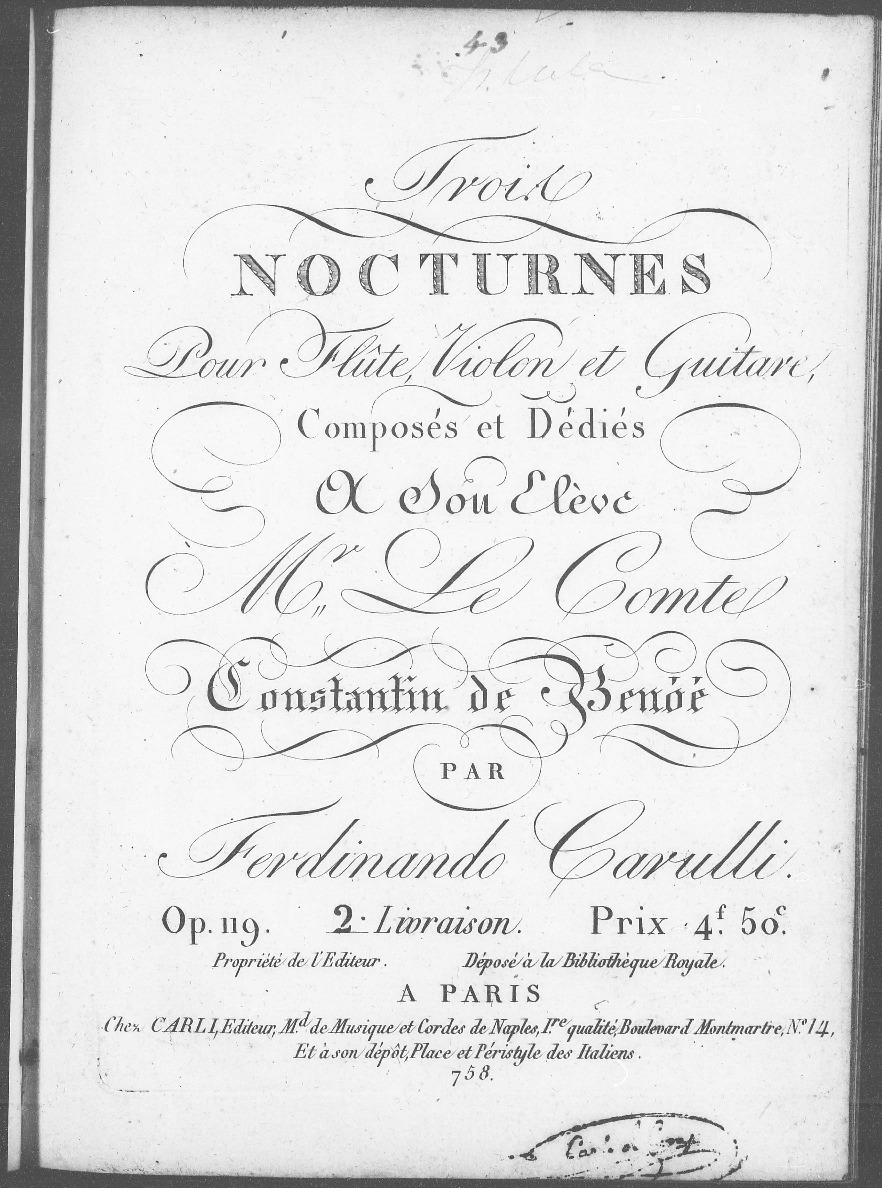 43
Trois
NOCTURNES
Pour Flûte, Violon et Guitare,
Composés et Dédiés
A Son Elève
Mr. Le Comte
Constantin de Benöé
PAR
Ferdinando Carulli.
Op. 119. 2e Livraison. Prix 4f. 50c.
Propriété de l'Editeur. Déposé à la Bibliothèque Royale.
A PARIS
Chez CARLI, Editeur, Md. de Musique et Cordes de Naples, 1re qualité, Boulevard Montmartre, No. 14,
Et à son dépôt, Place et Péristyle des Italiens.
758.